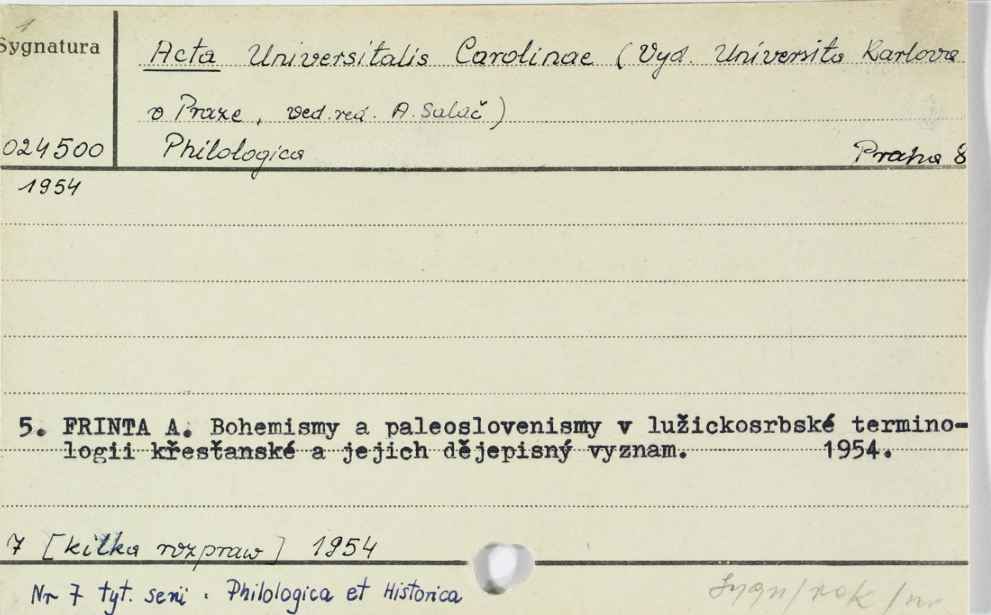 1
Sygnatura
Acta Universitalis Carolinae (Vyd. Universita Karlova
v Praze, ved. red. A. Salač)
024500
Philologica Praha 8
1954
5. FRINTA A. Bohemismy a paleoslovenismy v lužickosrbské termino-
logii křesťanské a jejich dějepisný vyznam. 1954.
7 [kilka rozpraw] 1954
Nr 7 tyt. serii. Philologica et Historica
Sygn/rok/nr